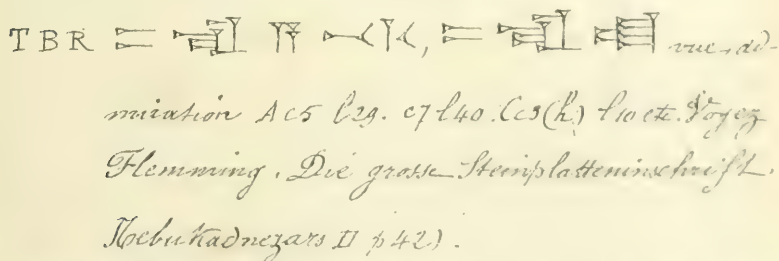 TBR 𒋰 𒊏 𒀀 𒋾, 𒋰 𒊏 vue, ad-
miration Ac5 l29. c7 l40. Cc3(h) l10 etc. Voyez
Flemming. Die grosse Steinplatteninschrift.
Nebukadnezars II p42).